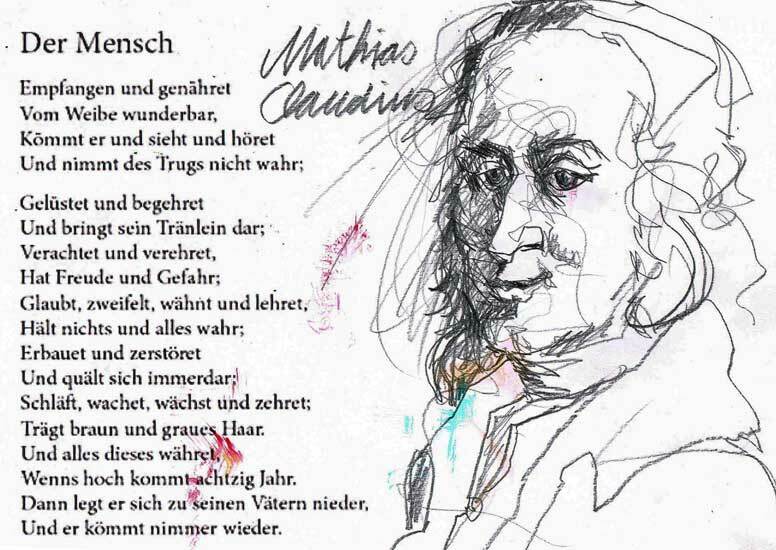 Der Mensch
Mathias
Claudius
Empfangen und genähret
Vom Weibe wunderbar,
Kömmt er und sieht und höret
Und nimmt des Trugs nicht wahr;
Gelüstet und begehret
Und bringt sein Tränlein dar;
Verachtet und verehret,
Hat Freude und Gefahr;
Glaubt, zweifelt, wähnt und lehret,
Hält nichts und alles wahr;
Erbauet und zerstöret
Und quält sich immerdar;
Schläft, wachet, wächst und zehret;
Trägt braun und graues Haar.
Und alles dieses währet,
Wenns hoch kommt achtzig Jahr.
Dann legt er sich zu seinen Vätern nieder,
Und er kömmt nimmer wieder.